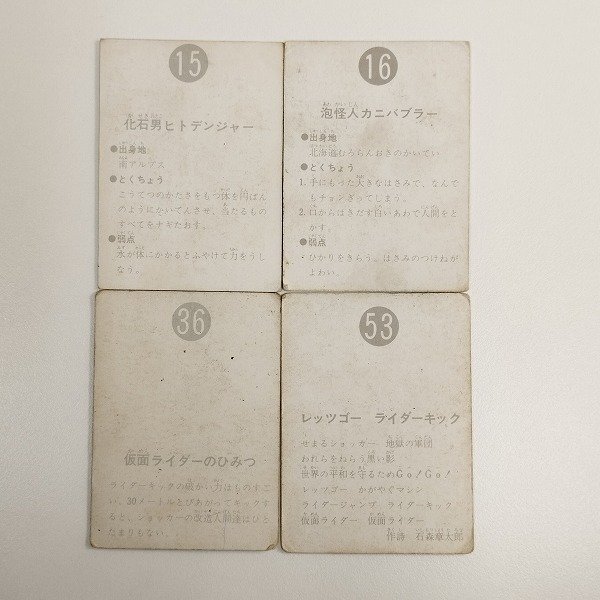 15
化石男ヒトデンジャー
●出身地
南アルプス
●とくちょう
こうてつのかたさをもつ体を円ばん
のようにかいてんさせ、当たるもの
すべてをナギたおす。
●弱点
水が体にかかるとふやけて力をうし
なう。
16
泡怪人カニバブラー
●出身地
北海道むろらんおきのかいてい
●とくちょう
1. 手にもった大きなはさみで、なんで
もチョンぎってしまう。
2. 口からはきだす白いあわで人間をと
かす。
●弱点
・ひかりをきらう。はさみのつけねが
よわい。
36
仮面ライダーのひみつ
ライダーキックの破かい力はものすご
い。30メートルとびあがってキックす
ると、ショッカーの改造人間達はひと
たまりもない。
53
レッツゴー ライダーキック
せまるショッカー 地獄の軍団
われらをねらう黒い影
世界の平和を守るためGo!Go!
レッツゴー かがやくマシン
ライダージャンプ ライダーキック
仮面ライダー 仮面ライダー
作詩 石森章太郎